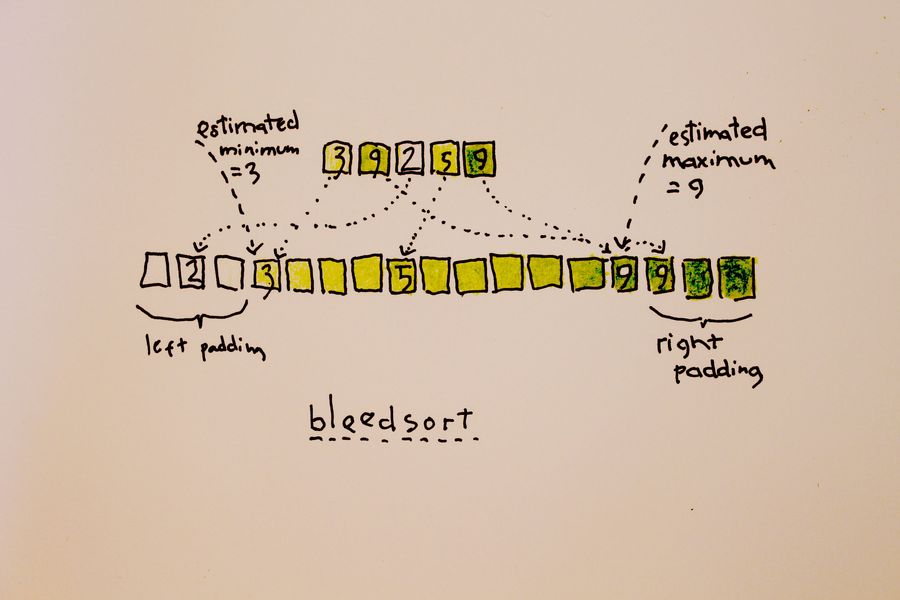 estimated
minimum
= 3
3 9 2 5 9
estimated
maximum
= 9
2 3 5 9 9
left padding
right
padding
bleedsort